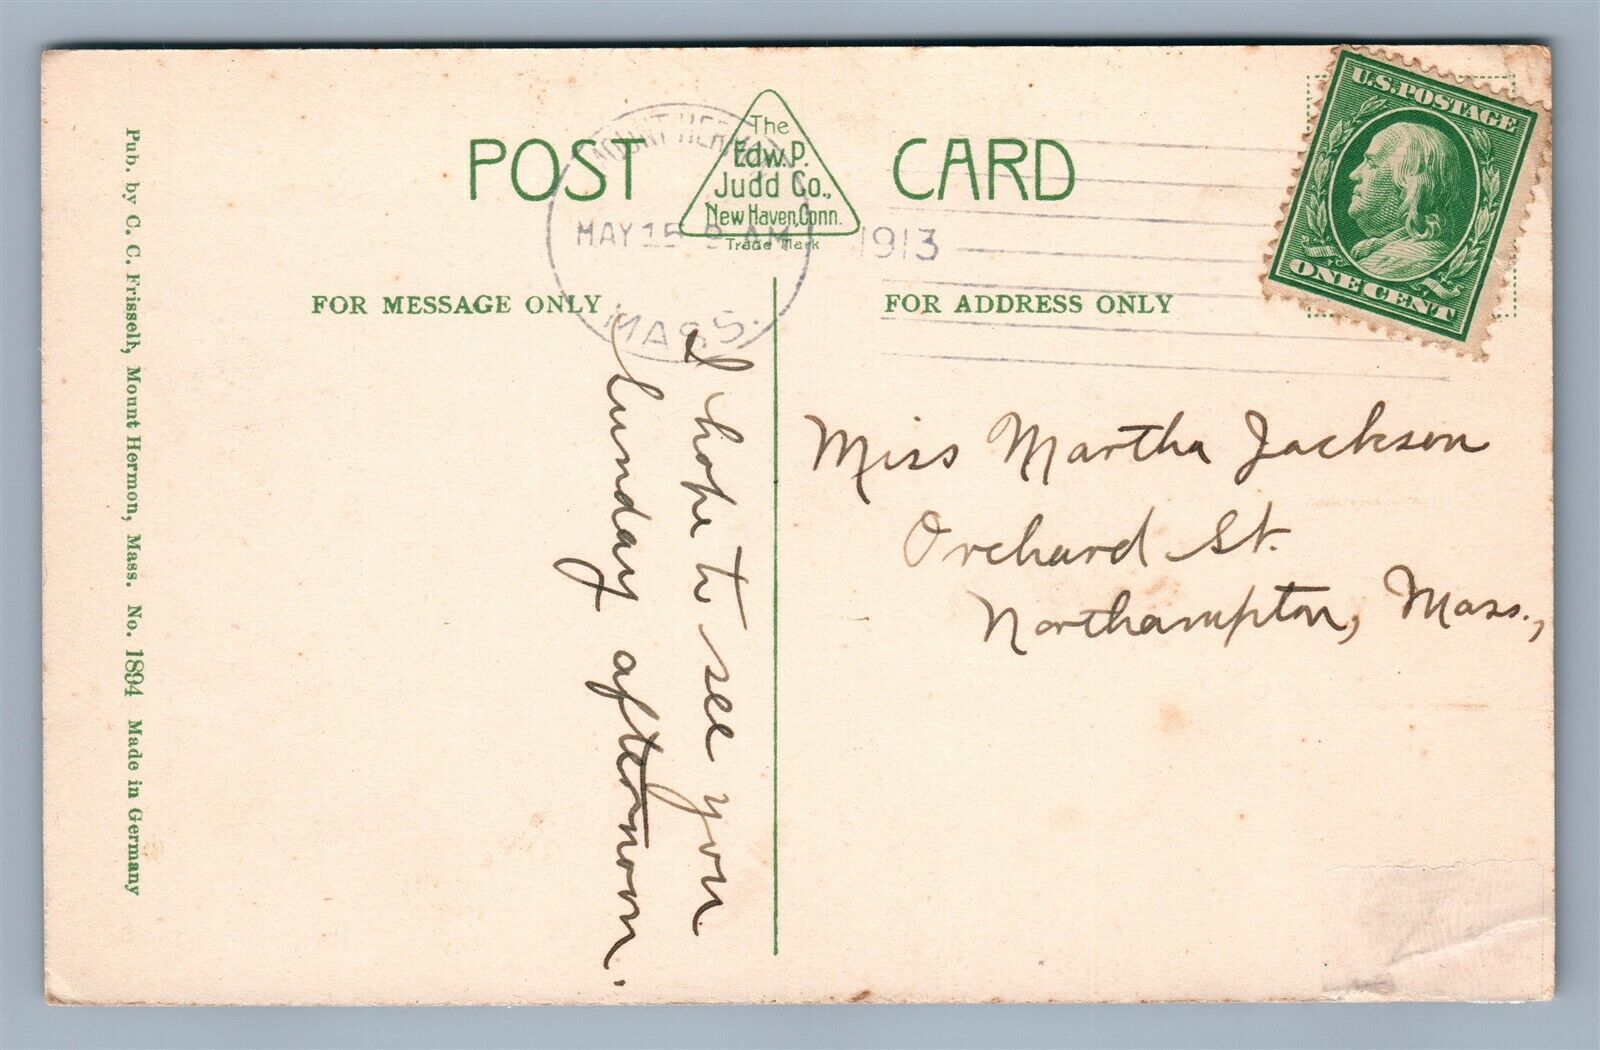 POST CARD
The
Edw. P.
Judd Co.,
New Haven, Conn.
Trade Mark
MOUNT HERMON
MAY 15 AM 1913
MASS.
U.S. POSTAGE
ONE CENT
FOR MESSAGE ONLY
FOR ADDRESS ONLY
I hope to see you
Sunday afternoon.
Miss Martha Jackson
Orchard St.
Northampton, Mass.,
Pub. by C. C. Frissell, Mount Hermon, Mass. No. 1894 Made in Germany